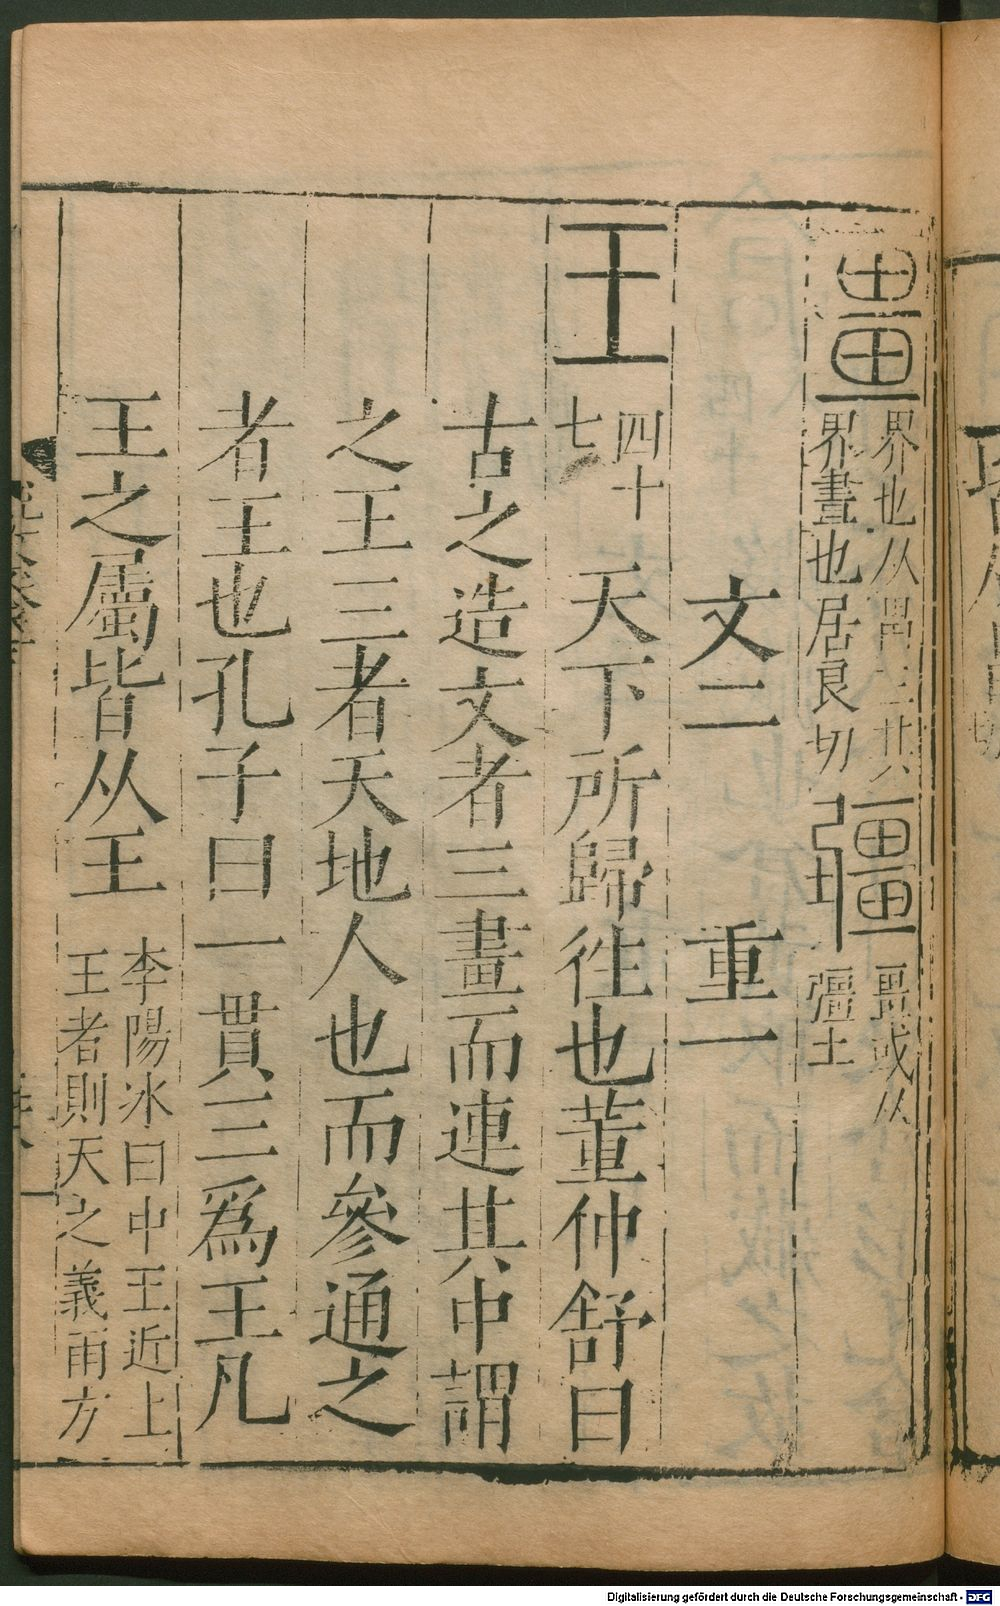 畺界也从畕三其
界畫也居良切
疆畺或从
彊土
文二 重一
王四十
七
天下所歸徃也董仲舒曰
古之造文者三畫而連其中謂
之王三者天地人也而參通之
者王也孔子曰一貫三爲王凡
王之屬皆从王
李陽冰曰中王近上
王者則天之義雨方
Digitalisierung gefördert durch die Deutsche Forschungsgemeinschaft - DFG